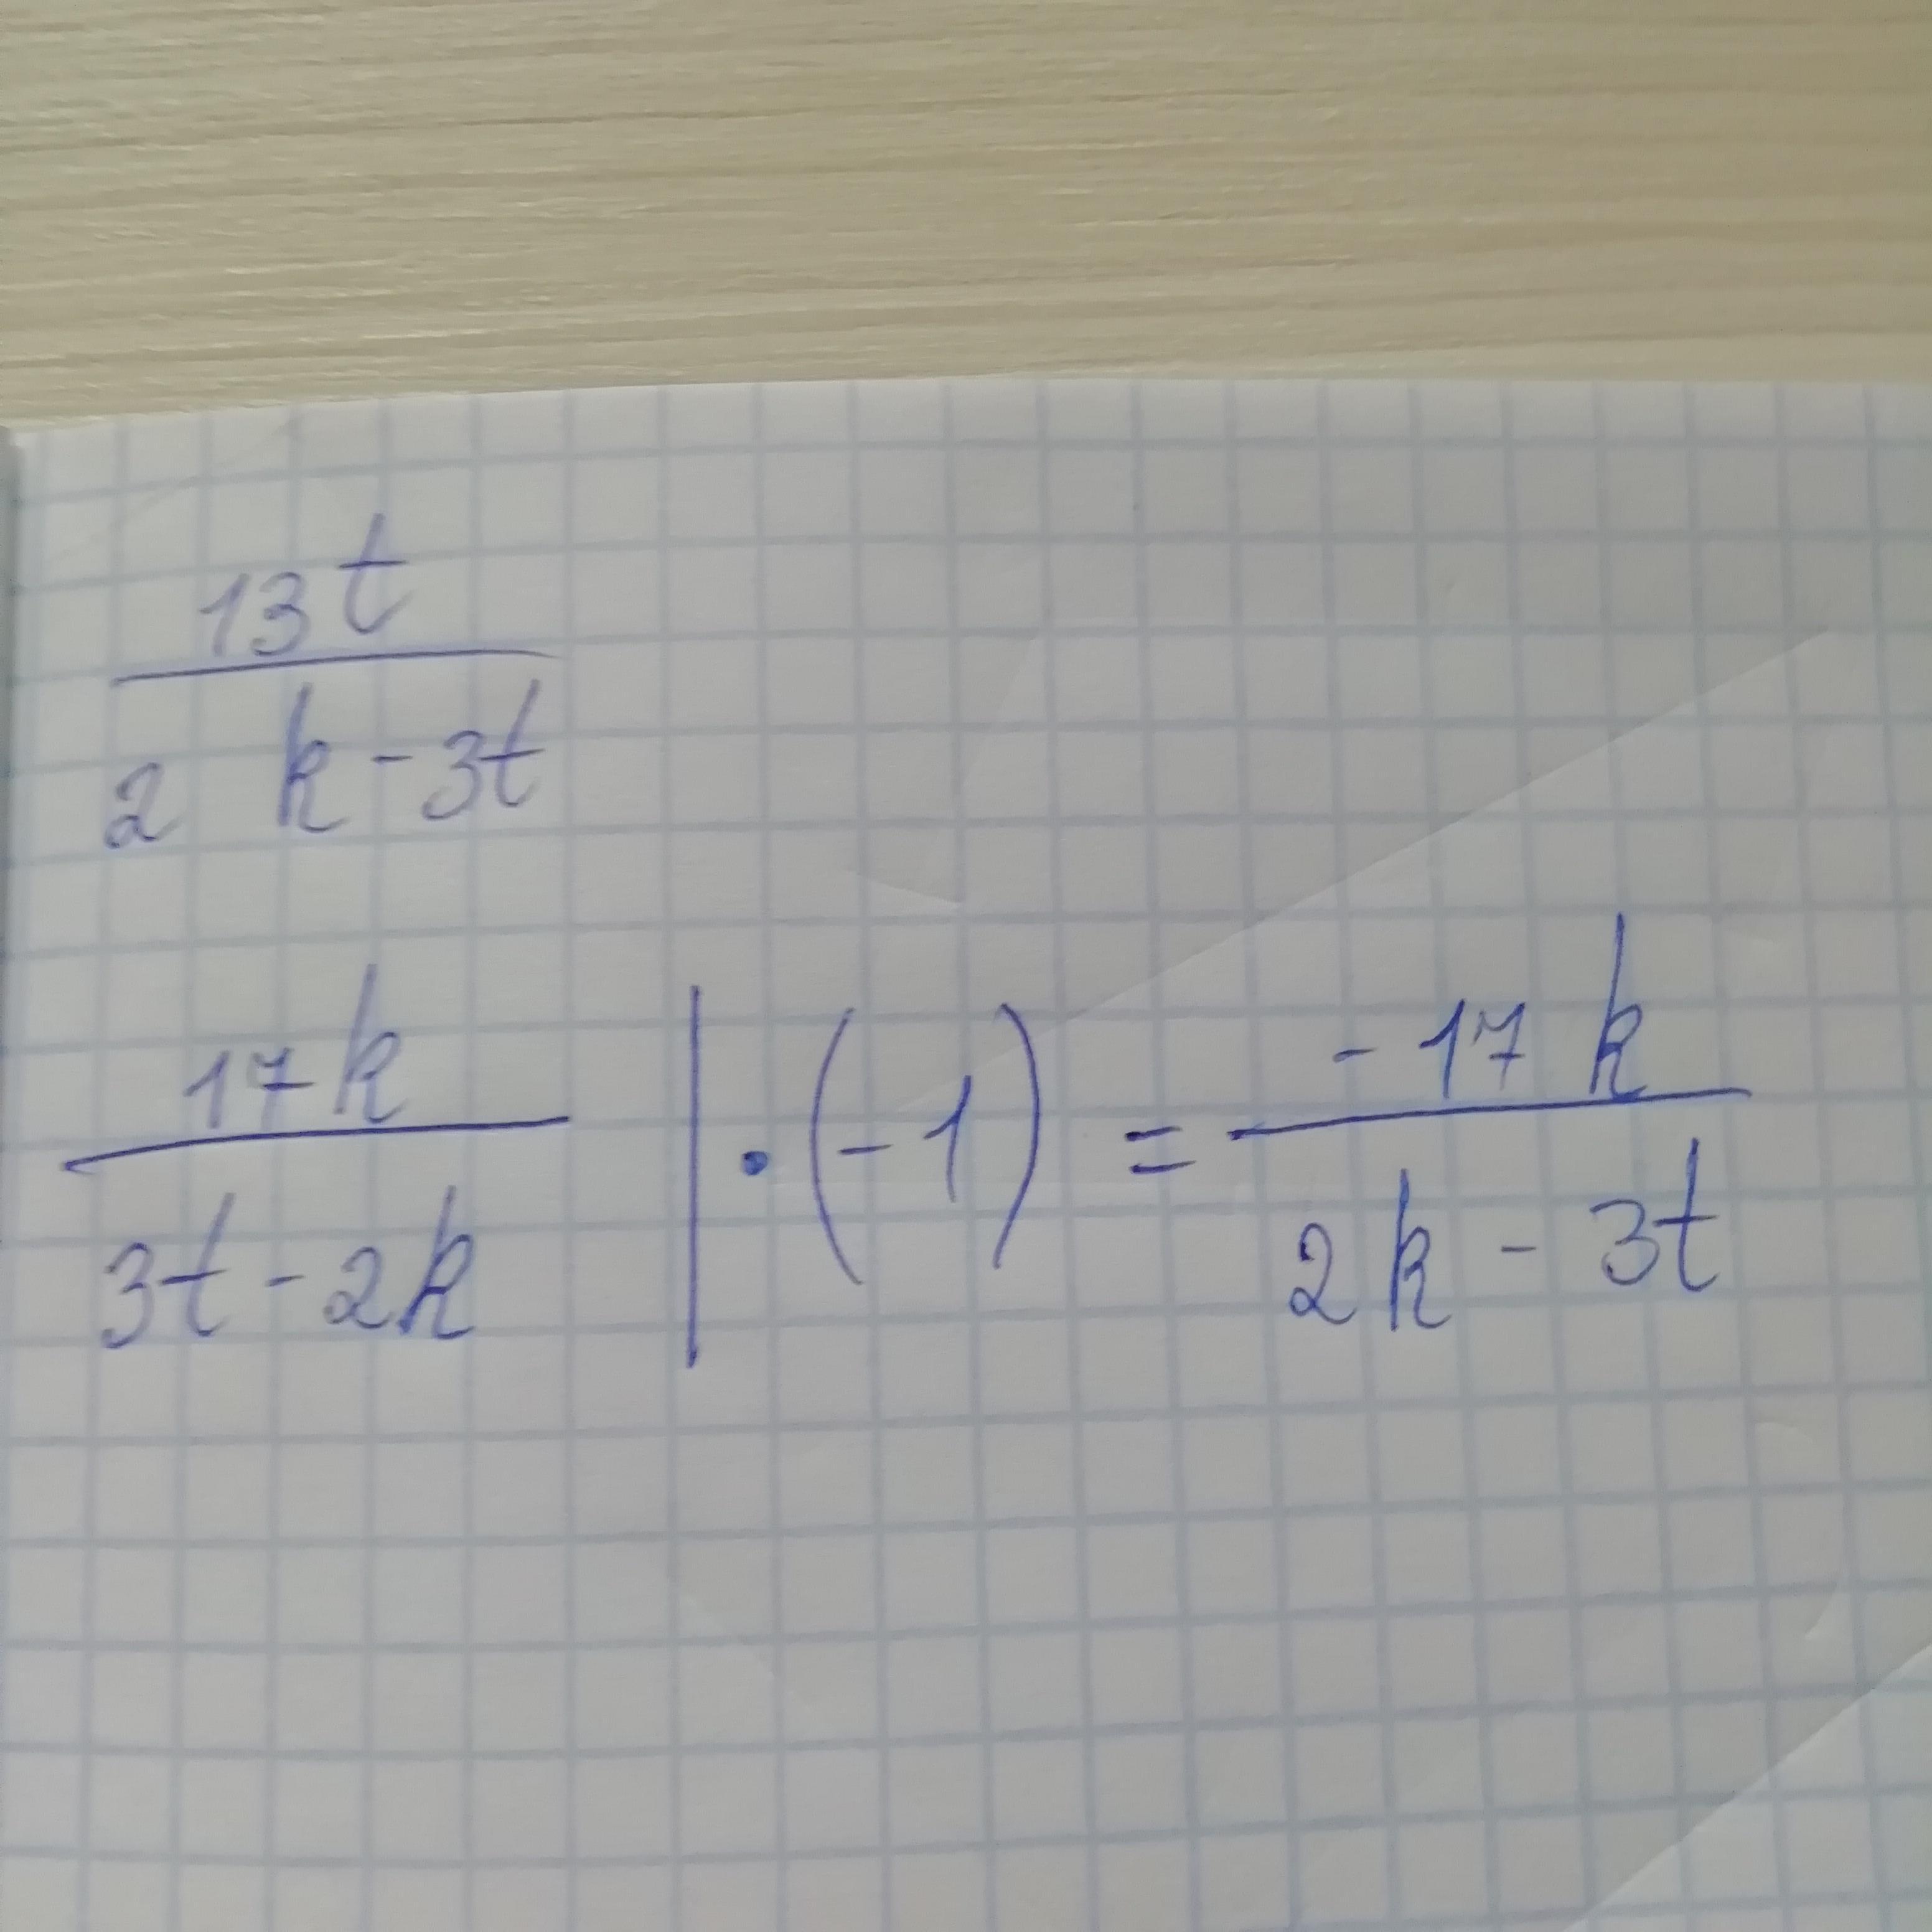 13t
2 k - 3t
17k
3t - 2k
| · (-1) =
- 17 k
2k - 3t